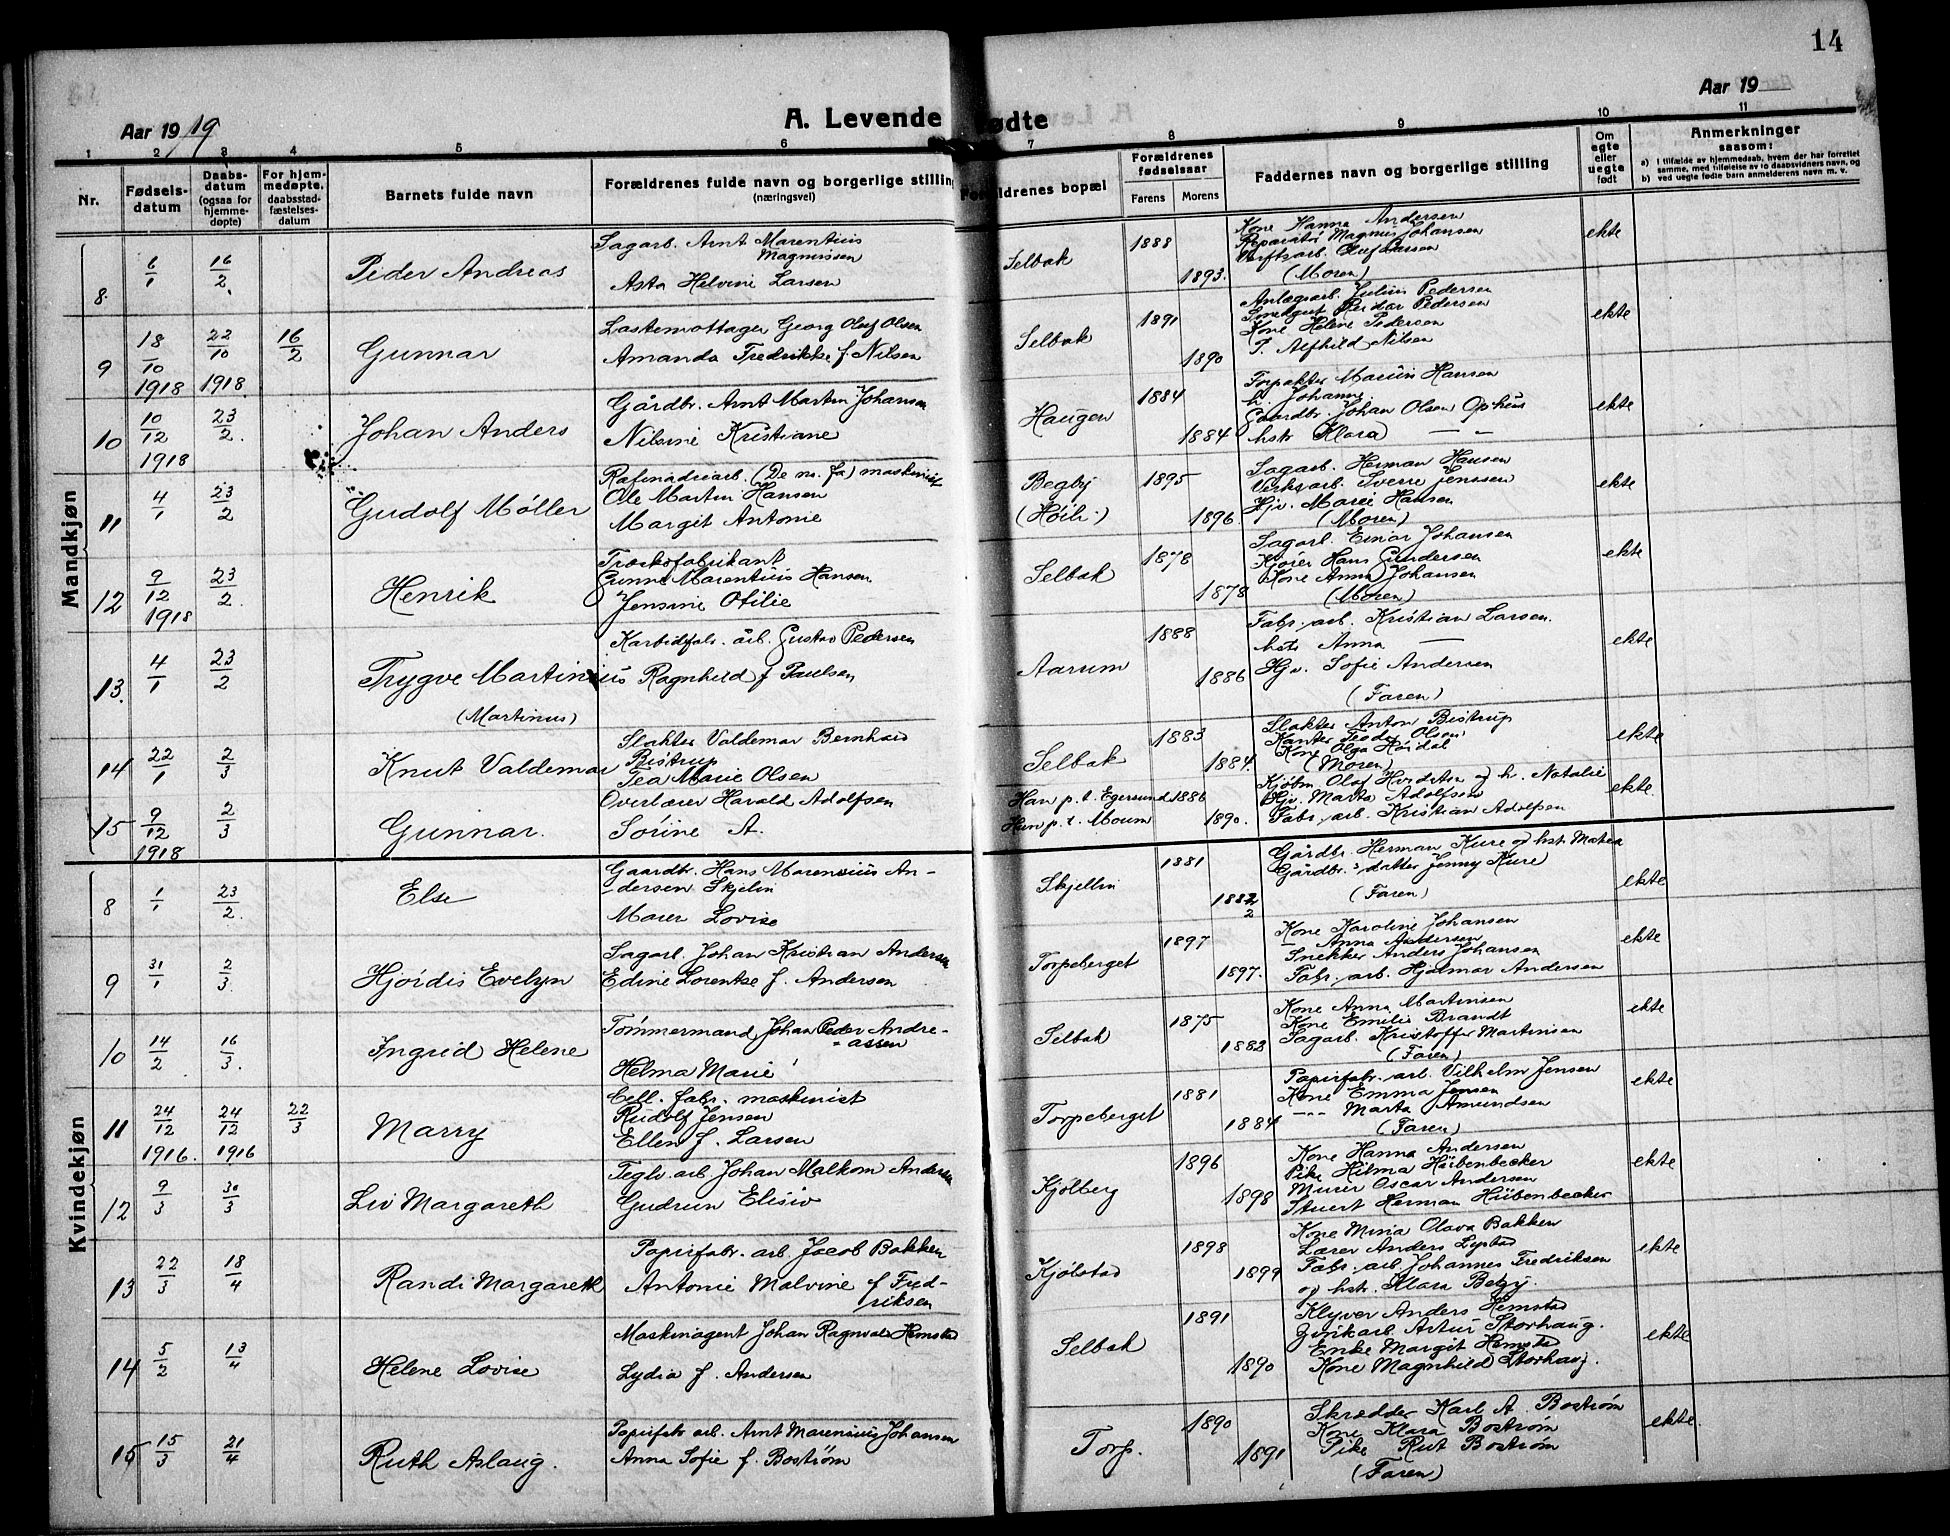 14
Aar 1919
Aar 19
A. Levende fødte
1 2 3 4 5 6 7 8 9 10 11
Nr.
Fødsels-
datum
Daabs-
datum
(ogsaa for
hjemme-
døpte)
For hjem-
medøpte,
daabsstad-
fæstelses-
datum
Barnets fulde navn
Forældrenes fulde navn og borgerlige stilling
(næringsvei)
Forældrenes bopæl
Forældrenes
fødselsaar
Farens Morens
Faddernes navn og borgerlige stilling
Om
egte
eller
uegte
født
Anmerkninger
saasom:
a) i tilfælde av hjemmedaab, hvem der har forrettet
samme, med tilføielse av to daabsvidners navn, og
b) ved uegte fødte barn anmelderens navn m. v.
Mandkjøn
8. 6/1 16/2 Peder Andreas
Sagarb. Arnt Marentius
Magnussen
Asta Helvine Larsen
Selbak 1888 1893.
Kone Hanna Andersen
Reparatør Magnus Johansen
Verftsarb. Oluf Larsen
(Moren)
ekte
9 18/10 1918 22/10 1918. 16/2 Gunnar
Lastemottager Georg Oluf Olsen
Amanda Fredrikke f. Nilsen
Selbak 1891 1890
Anlægsarb. Julius Pedersen
Smedgut Reidar Pedersen
Kone Helene Pedersen
P. Alfhild Nilsen
ekte
10 10/12 1918 23/2. Johan Anders
Gårdbr. Arnt Martin Johansen
Nilsine Kristiane
Haugen 1884 1884
Forpakter Marius Hansen
h. Johanne
Gaardbr. Johan Olsen Ophus
hstr Klara — „ —
ekte
11 4/1 23/2 Gudolf Møller
Rafinadeiarb. (De no. fa) maskinist
Ole Martin Hansen
Margit Antonie
Begby
(Høili) 1895 1896.
Sagarb. Herman Hansen
Verksarb. Sverre Jenssen
Hjv. Marie Hansen
(Moren)
ekte
12 9/12 1918 23/2. Henrik
Træskofabrikant
Gunne Marentius Hansen
Jensine Otilie
Selbak 1878 1878
Sagarb. Einar Johansen
Kjører Hans Gundersen
Kone Anna Johansen
(Moren)
ekte
13. 4/1 23/2 Trygve Martinius
(Martinus)
Karbidfabr. arb. Gustav Pedersen
Ragnhild f Paulsen
Aarum 1888 1886
Fabr. arb. Kristian Larsen.
hstr Anna —
Hjv. Sofie Andersen
(Faren)
ekte
14 22/1 2/3 Knut Valdemar
Slakter Valdemar Bernhard
Bistrup
Tea Marie Olsen
Selbak 1883 1884.
Slakter Anton Bistrup
Kanter Teodor Olsen
Kone Olga Høidal
(Moren)
ekte
15 9/12 1918 2/3 Gunnar.
Overlærer Harald Adolfsen
Sørine A.
Han p.t. Egersund 1886
Hun p.t. Moum 1890.
Kjøbm. Olaf og h. Natalie
Hjv. Marta Adolfsen
Fabr. arb. Kristian Adolfsen
ekte.
Kvindekjøn
8 1/1 23/2. Else
Gaardbr. Hans Marensius An-
dersen Skjelin
Maren Lovise
Skjellin 1881 1882
2
Gårdbr. Herman Kure og hst Matea
Gårdbr.s datter Jenny Kure
(Faren)
ekte
9 31/1 2/3. Hjørdis Evelyn
Sagarb. Johan Kristian Andersen
Edine Lorentse f. Andersen
Torpeberget 1897 1897.
Kone Karoline Johansen
— Anna Andersen
Snekker Anders Johansen
Fabr. arb. Hjalmar Andersen
ekte
10 14/2. 16/3. Ingrid Helene
Tømmermand Johan Peder Andre-
assen
Helma Marie
Selbak 1875 1883
Kone Anna Martinsen
Kone Emilie Brandt
Sagarb. Kristoffer Martinsen
(Faren)
ekte
11 24/12 1916. 24/12 1916 22/3 Marry
Cell. fabr. maskinist
Rudolf Jensen
Ellen f. Larsen
Torpeberget 1881 1884
Papirfabr. arb. Vilhelm Jensen
Kone Emma Jensen
—„— Marta Amundsen
(Faren)
ekte
12 9/3 30/3 Liv Margareth
Teglv. arb Johan Malkom Andersen
Gudrun Elisiv
Kjølberg 1896 1898
Kone Hanna Andersen
Pike Hilma Hübenbecker
Murer Oscar Andersen
Stuert Herman Hübenbecker
ekte
13 22/3 18/4 Randi Margareth
Papirfabr. arb. Jacob Bakken
Antonie Malvine f Fred-
riksen
Kjølstad 1898 1899
Kone Mina Olava Bakken
Lærer Anders Lystad
Fabr. arb Johannes Fredriksen
og hstr. Klara Begby.
ekte
14 5/2 13/4 Helene Lovise
Maskinagent Johan Ragnvald Hemstad
Lydia f. Andersen
Selbak 1891 1890
Klyver Anders Hemstad
Artur Storhaug.
Enke Margit Hemstad
Kone Magnhild Storhaug.
ekte
15 15/3 21/4 Ruth Aslaug.
Papirfabr arb. Arnt Marensius Johansen
Anna Sofie f. Bostrøm
Torp. 1890 1891
Skrædder Karl A. Bostrøm
Kone Klara Bostrøm
Pike Rut Bostrøm
(Faren)
ekte.